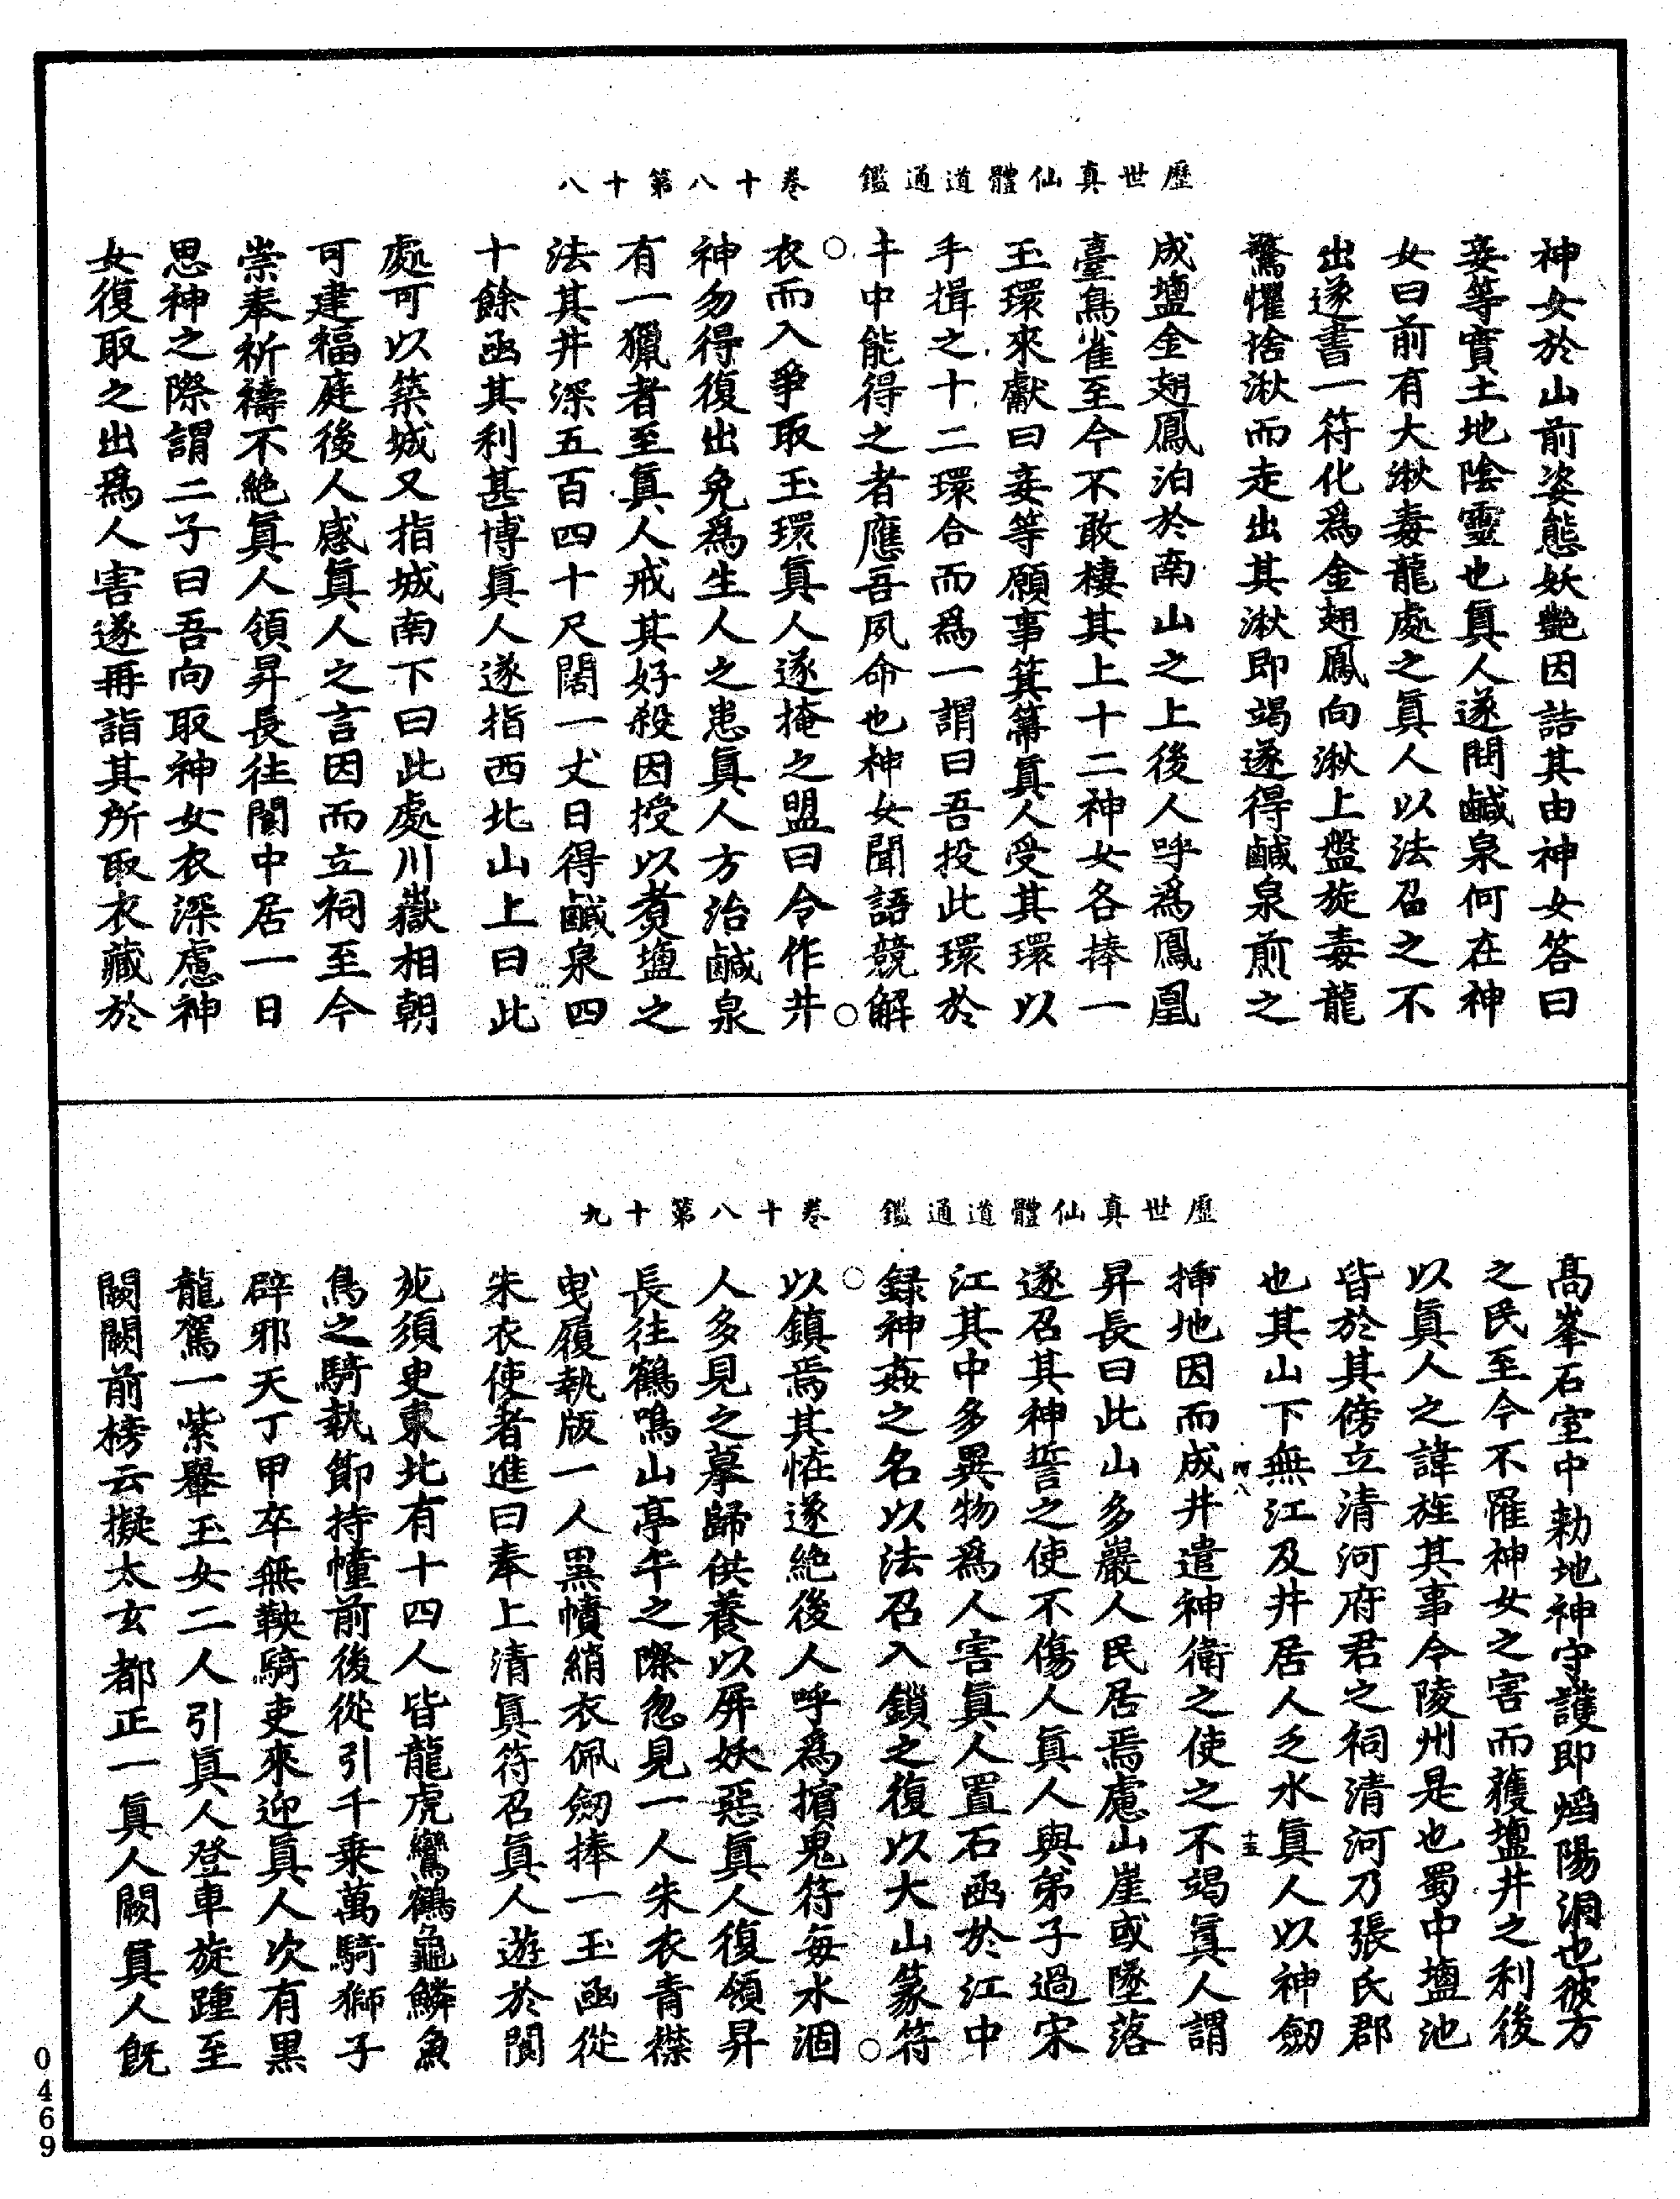 歷世真仙體道通鑑　卷十八第十八
神女於山前姿態妖艷因詰其由神女答曰
妾等實土地陰靈也真人遂問鹹泉何在神
女曰前有大湫毒龍處之真人以法召之不
出遂書一符化為金翅鳳向湫上盤旋毒龍
驚懼捨湫而走出其湫即竭遂得鹹泉煎之
成鹽金翅鳳泊於南山之上後人呼為鳳凰
臺鳥雀至今不敢棲其上十二神女各捧一
玉環來獻曰妾等願事箕箒真人受其環以
手揖之十二環合而為一謂曰吾投此環於
井中能得之者應吾夙命也神女聞語競解
衣而入爭取玉環真人遂掩之盟曰令作井
神勿得復出免為生人之患真人方治鹹泉
有一獵者至真人戒其好殺因授以煑鹽之
法其井深五百四十尺闊一丈日得鹹泉四
十餘凾其利甚博真人遂指西北山上曰此
處可以築城又指城南下曰此處川嶽相朝
可建福庭後人感真人之言因而立祠至今
崇奉祈禱不絶真人領昇長往閬中居一日
思神之際謂二子曰吾向取神女衣深慮神
女復取之出為人害遂再詣其所取衣藏於
歷世真仙體道通鑑　卷十八第十九
高峯石室中勑地神守護即熖陽洞也彼方
之民至今不罹神女之害而獲鹽井之利後
以真人之諱旌其事今陵州是也蜀中鹽池
皆於其傍立清河府君之祠清河乃張氏郡
也其山下無江及井居人乏水真人以神劒
挿地因而成井遣神衛之使之不竭真人謂
昇長曰此山多巖人民居焉慮山崖或墜落
遂召其神誓之使不傷人真人與弟子過宋
江其中多異物為人害真人置石凾於江中
録神姦之名以法召入鎖之復以大山篆符
以鎮焉其恠遂絶後人呼為擯鬼符每水涸
人多見之摹歸供養以屏妖惡真人復領昇
長往鶴鳴山亭午之際忽見一人朱衣青襟
曳履執版一人黑幘綃衣佩劒捧一玉凾從
朱衣使者進曰奉上清真符召真人遊於閬
苑須臾東北有十四人皆龍虎鸞鶴龜鱗魚
鳥之騎執節持幢前後從引千乘萬騎獅子
辟邪天丁甲卒無鞅騎吏來迎真人次有黑
龍駕一紫轝玉女二人引真人登車旋踵至
闕闕前榜云擬太玄都正一真人闕真人既
0469